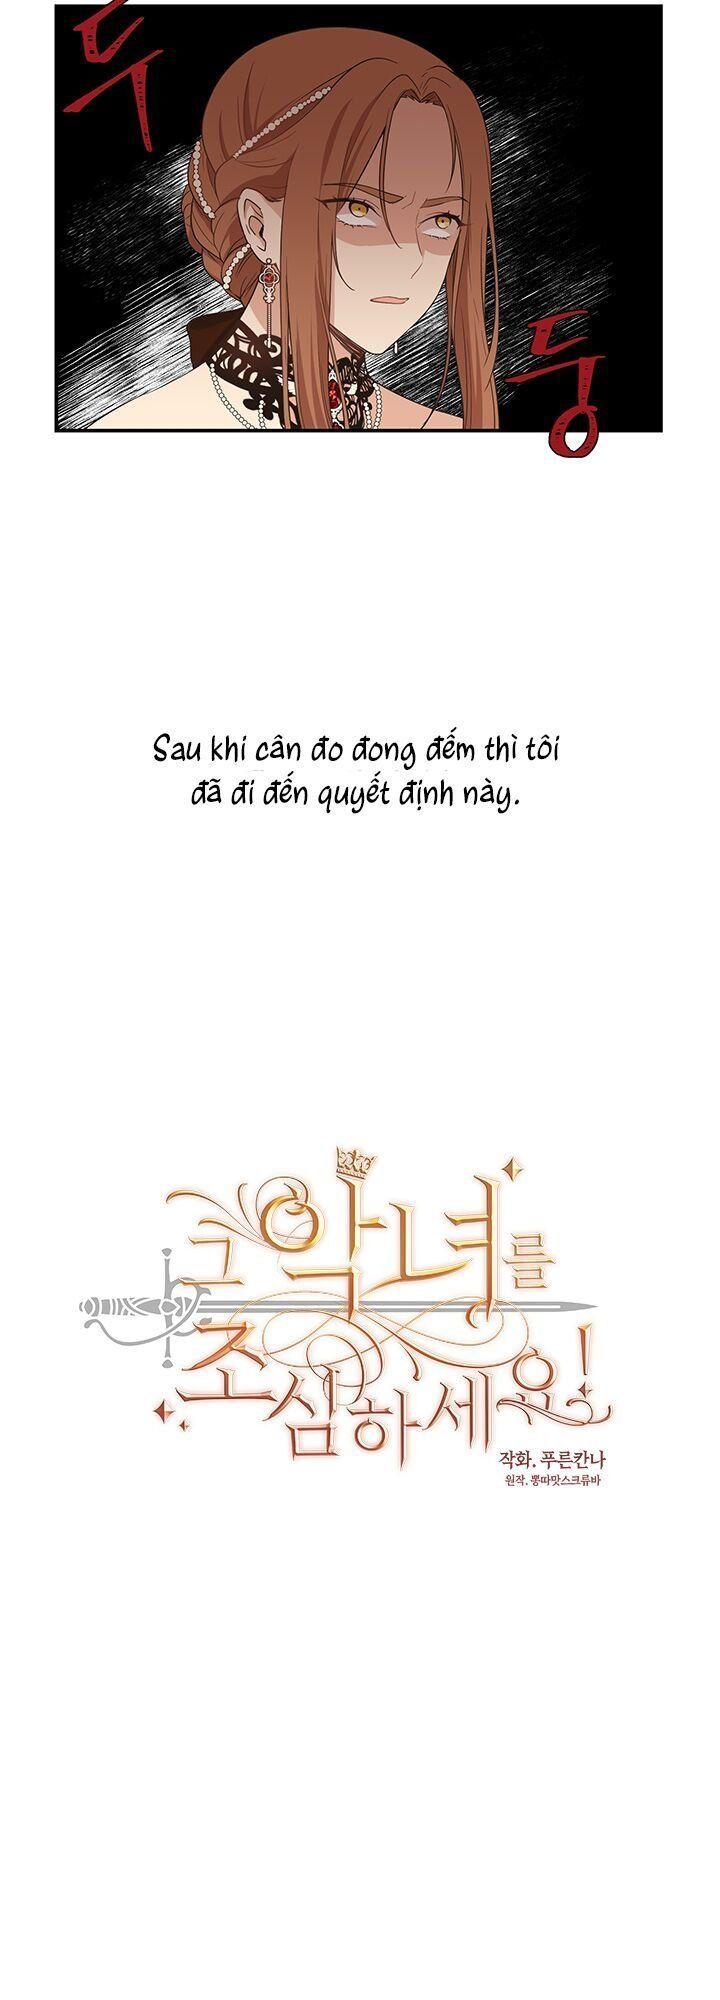 두
둥
Sau khi cân đo đong đếm thì tôi
đã đi đến quyết định này.
그 악녀를
조심하세요!
작화. 푸른칸나
원작. 뽕따맛스크류바